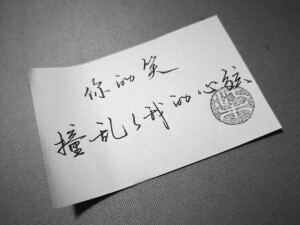 你的笑
撞乱了我的心弦